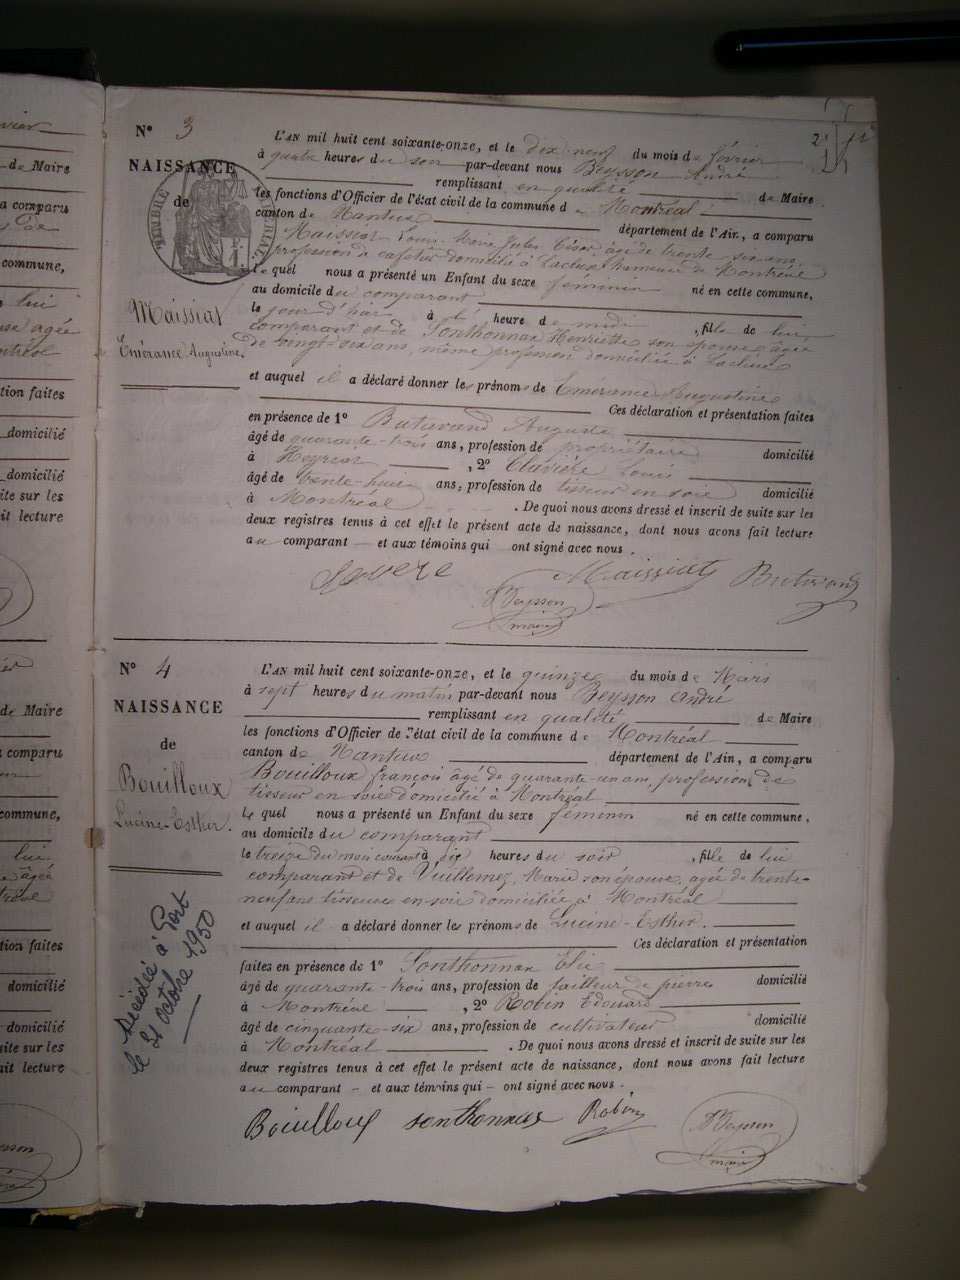 N° 3
NAISSANCE
de
Maissiat
Emérance Augustine
L'AN mil huit cent soixante-onze, et le dix neuf du mois de février
à quatre heures du soir par-devant nous Beysson André
remplissant en qualité de Maire
les fonctions d'Officier de l'état civil de la commune de Montréal
canton de Nantua département de l'Ain, a comparu
Maissiat Louis Marie Jules César âgé de trente-six ans
profession de cafetier domicilié à hameau de Montréal
Lequel nous a présenté un Enfant du sexe féminin né en cette commune,
au domicile du comparant
le jour d'hier à heure de midi, fille de lui
comparant et de Sonthonnax Henriette son épouse âgée
de vingt-six ans, même profession domiciliée à
et auquel il a déclaré donner les prénoms de Emérance Augustine
Ces déclaration et présentation faites
en présence de 1° Buturand Auguste
âgé de quarante-trois ans, profession de propriétaire domicilié
à , 2° Clavière Louis
âgé de trente-huit ans, profession de tisseur en soie domicilié
à Montréal. De quoi nous avons dressé et inscrit de suite sur les
deux registres tenus à cet effet le présent acte de naissance, dont nous avons fait lecture
au comparant et aux témoins qui ont signé avec nous.
Maissiat Buturand
Beysson
maire
N° 4
NAISSANCE
de
Bouilloux
Lucine-Esther.
L'AN mil huit cent soixante-onze, et le quinze du mois de Mars
à sept heures du matin par-devant nous Beysson André
remplissant en qualité de Maire
les fonctions d'Officier de l'état civil de la commune de Montréal
canton de Nantua département de l'Ain, a comparu
Bouilloux françois âgé de quarante-un ans, profession de
tisseur en soie domicilié à Montréal
Lequel nous a présenté un Enfant du sexe féminin né en cette commune,
au domicile du comparant
le treize du mois courant à dix heures du soir, fille de lui
comparant et de Vuillemez Marie son épouse, agée de trente-
neuf ans tisseuse en soie domiciliée à Montréal
et auquel il a déclaré donner les prénoms de Lucine-Esther.
Ces déclaration et présentation
faites en présence de 1° Sonthonnax Élie
âgé de quarante-trois ans, profession de tailleur de pierres domicilié
à Montréal, 2° Robin Edouard
âgé de cinquante-six ans, profession de cultivateur domicilié
à Montréal. De quoi nous avons dressé et inscrit de suite sur les
deux registres tenus à cet effet le présent acte de naissance, dont nous avons fait lecture
au comparant - et aux témoins qui - ont signé avec nous -
Bouilloux sonthonnax Robin
Beysson
maire
Décédée à Port
le 31 octobre 1950